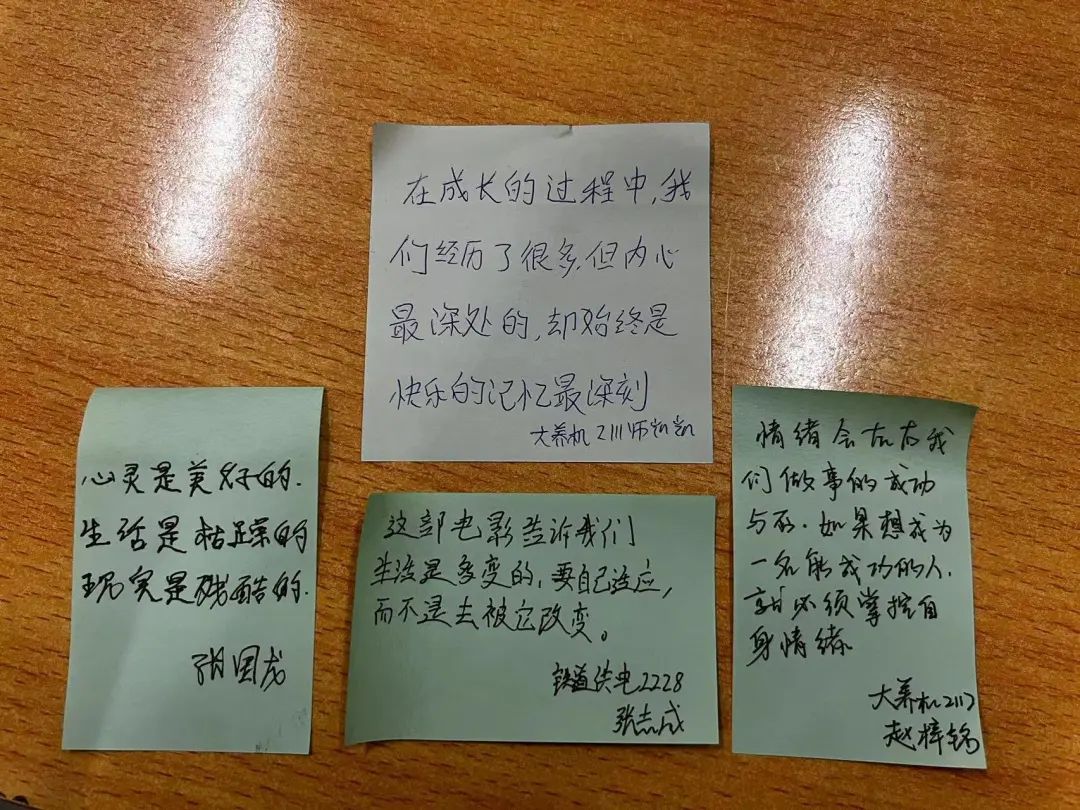 在成长的过程中,我
们经历了很多,但内心
最深处的,却始终是
快乐的记忆最深刻
大养机2111师
心灵是美好的.
生活是枯躁的
现实是残酷的.
张国龙
这部电影告诉我们
生活是多变的,要自己适应,
而不是去被它改变。
铁道供电2228
张志成
情绪会左右我
们做事的成功
与否.如果想成为
一名能成功的人.
就必须掌控自
身情绪
大养机2117
赵梓锦